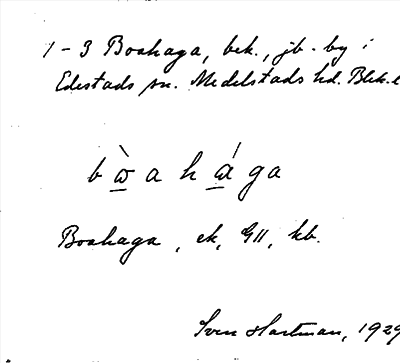 1-3 Boahaga, bek., jb-by i
Edestads sn. Medelstads hd. Blek.l
bὼ̲ahώ̲ga
Boahaga, ek, GII, kb.
Sven Hartman, 1929